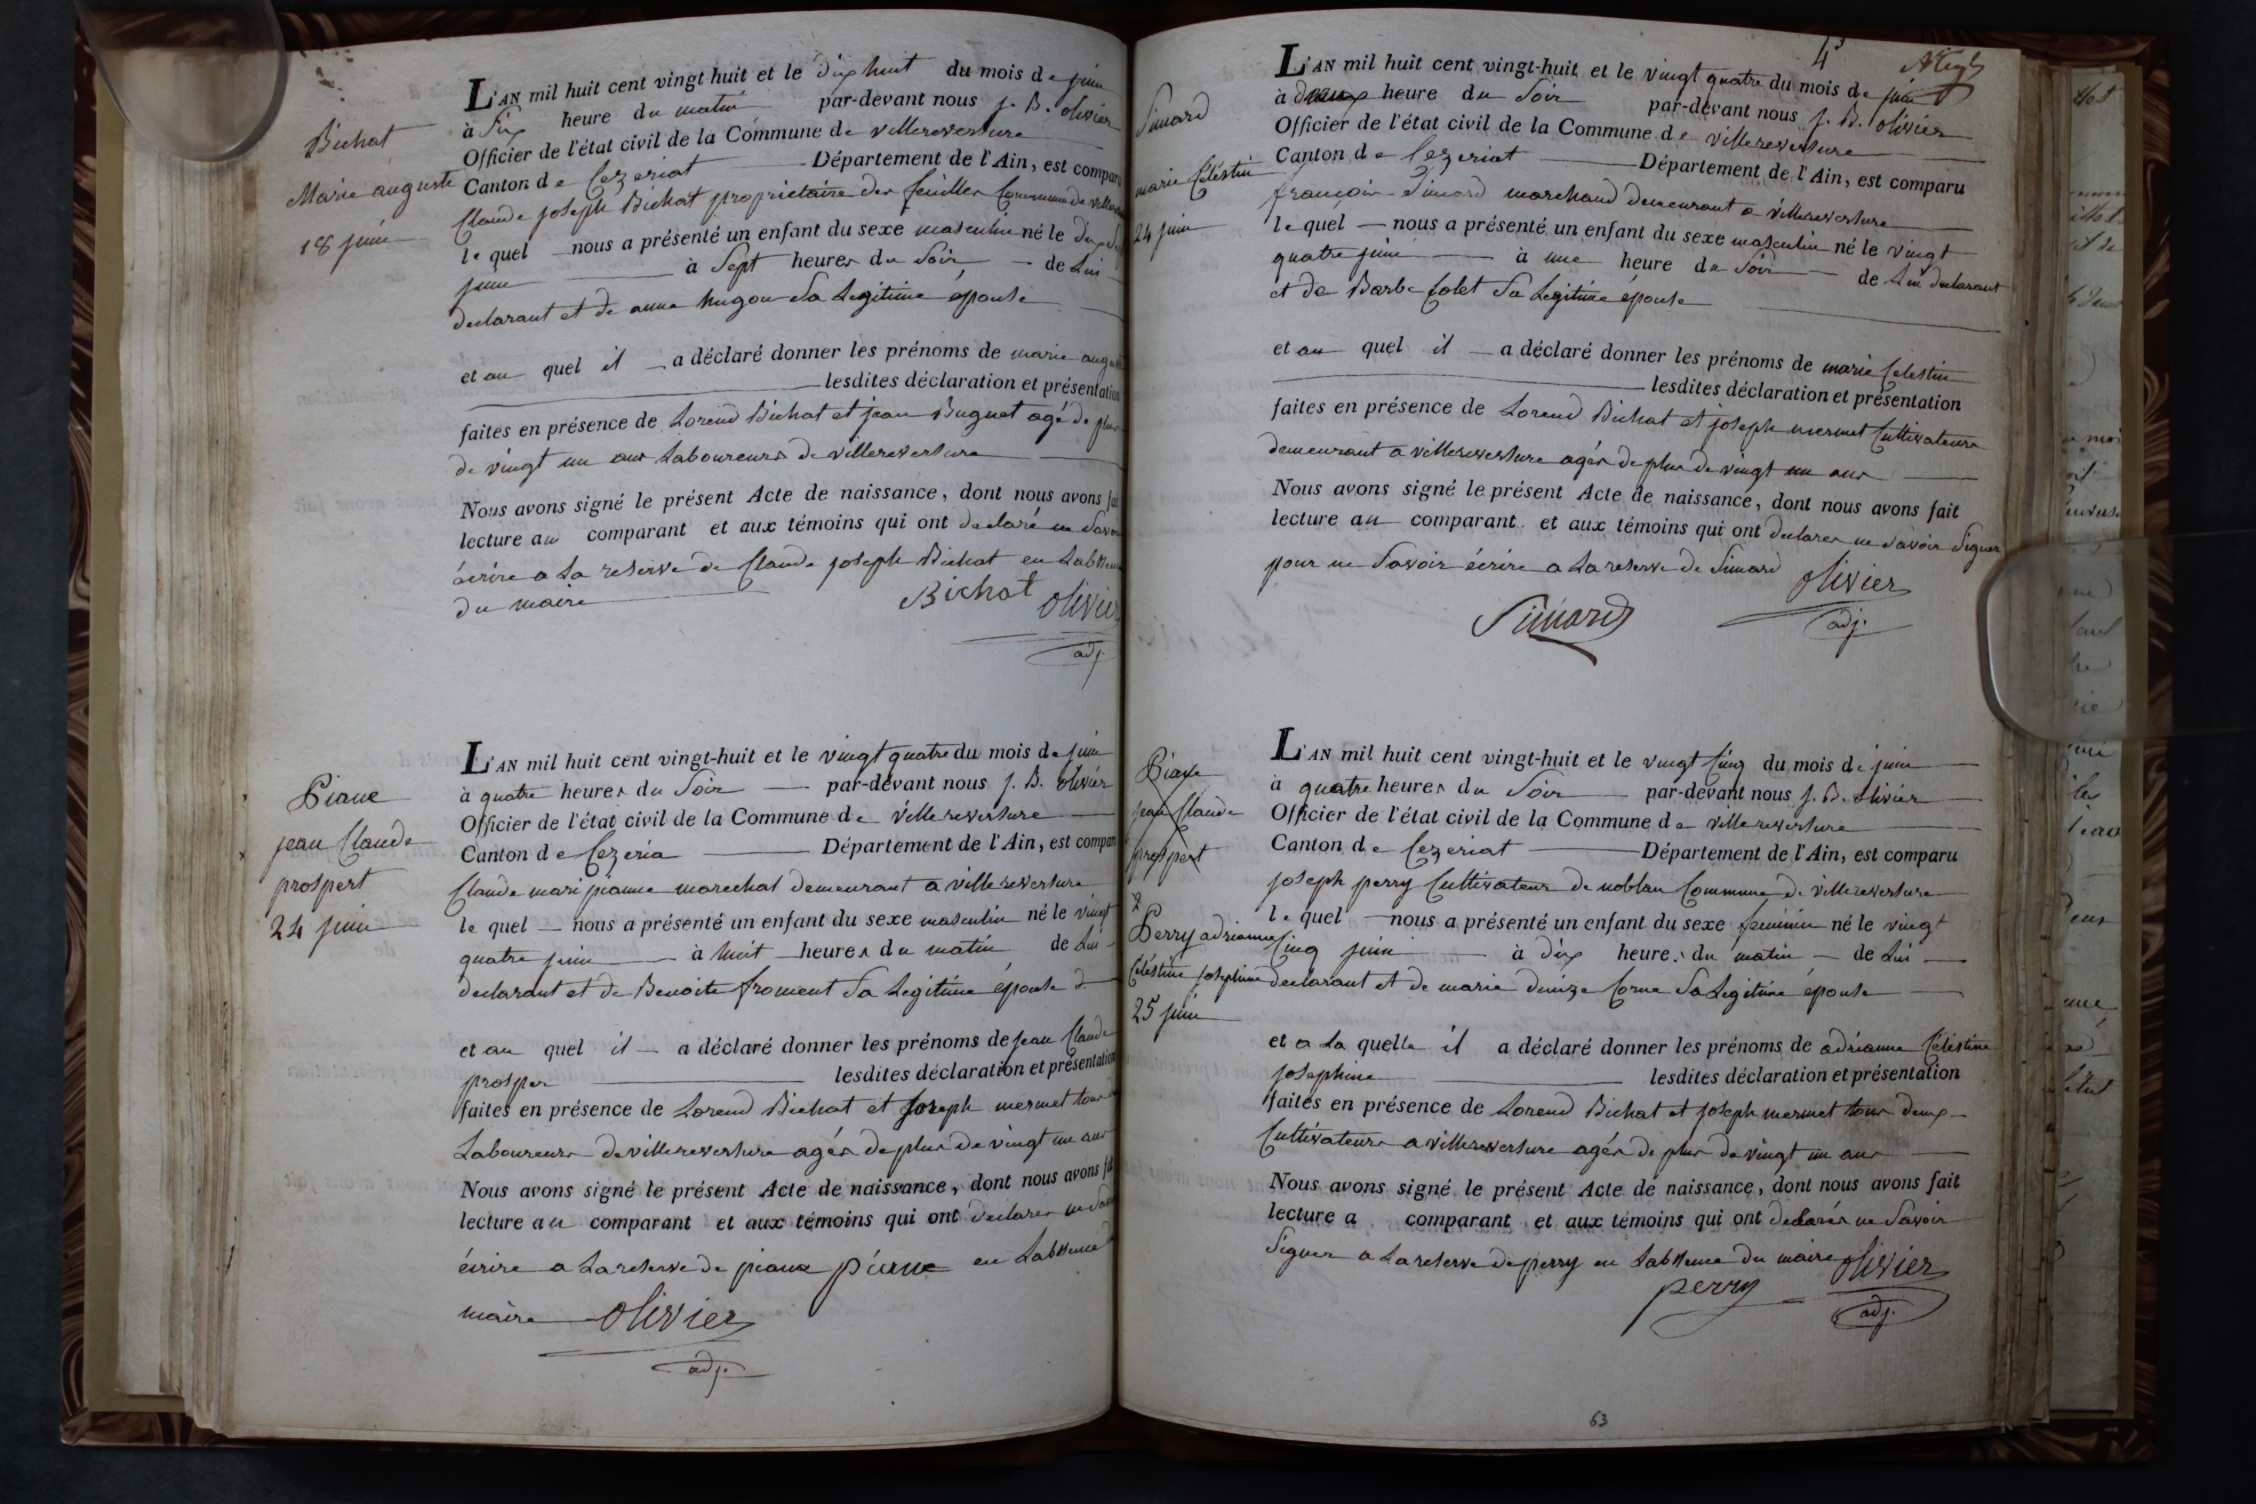 Bichat
Marie auguste
18 juin
L'AN mil huit cent vingt-huit et le dix huit du mois de juin
à Six heure du matin par-devant nous J. B. olivier
Officier de l'état civil de la Commune de villereversure
Canton de Cezeriat Département de l'Ain, est comparu
Claude joseph Bichat proprietaire des feuilles Commune de
le quel nous a présenté un enfant du sexe masculin né le
juin à Sept heures du Soir de Lui
declarant et de anne hugon Sa Legitime épouse
et au quel il a déclaré donner les prénoms de marie auguste
lesdites déclaration et présentation
faites en présence de Lorend Bichat et jean Buguet agé de plus
de vingt un ans Laboureurs de villereversure
Nous avons signé le présent Acte de naissance, dont nous avons fait
lecture au comparant et aux témoins qui ont declaré ne Savoir
écrire a La reserve de Claude joseph Bichat en Labsence
du maire Bichat olivier
adj.
Piane
jean Claude
prospert
24 juin
L'AN mil huit cent vingt-huit et le vingt quatre du mois de juin
à quatre heures du Soir par-devant nous J. B. olivier
Officier de l'état civil de la Commune de villereversure
Canton de Cezeria Département de l'Ain, est comparu
Claude mari pianne marechal demeurant a villereversure
le quel nous a présenté un enfant du sexe masculin né le vingt
quatre juin à huit heures du matin de Lui
declarant et de Benoite froment Sa Legitime épouse
et au quel il a déclaré donner les prénoms de jean Claude
prosper lesdites déclaration et présentation
faites en présence de Lorend Bichat et joseph mermet tous
Laboureurs de villereversure agés de plus de vingt un ans
Nous avons signé le présent Acte de naissance, dont nous avons fait
lecture au comparant et aux témoins qui ont declares ne Savoir
écrire a La reserve de piane piane en Labsence
maire olivier
adj.
Simard
marie Célestin
24 juin
L'AN mil huit cent vingt-huit et le vingt quatre du mois de juin
à deux heure du Soir par-devant nous J. B. olivier
Officier de l'état civil de la Commune de villereversure
Canton de Cezeriat Département de l'Ain, est comparu
françois Simard marchand demeurant a villereversure
le quel nous a présenté un enfant du sexe masculin né le vingt
quatre juin à une heure du Soir de Lui declarant
et de Barbe Colet Sa Legitime épouse
et au quel il a déclaré donner les prénoms de marie Celestin
lesdites déclaration et présentation
faites en présence de Lorend Bichat et joseph mermet Cultivateurs
demeurant a villereversure agés de plus de vingt un ans
Nous avons signé le présent Acte de naissance, dont nous avons fait
lecture au comparant et aux témoins qui ont declares ne Savoir Signer
pour ne Savoir écrire a La reserve de Simard olivier
Simard adj.
Piane
jean Claude
prospert
Perry adrianne
Célestine josephine
25 juin
L'AN mil huit cent vingt-huit et le vingt Cinq du mois de juin
à quatre heures du Soir par-devant nous J. B. olivier
Officier de l'état civil de la Commune de villereversure
Canton de Cezeriat Département de l'Ain, est comparu
joseph perry Cultivateur de noblan Commune de villereversure
le quel nous a présenté un enfant du sexe feminin né le vingt
Cinq juin à dix heures du matin de Lui
declarant et de marie denize Corne Sa Legitime épouse
et a La quelle il a déclaré donner les prénoms de adrianne Célestine
josephine lesdites déclaration et présentation
faites en présence de Lorend Bichat et joseph mermet tous deux
Cultivateurs a villereversure agés de plus de vingt un ans
Nous avons signé le présent Acte de naissance, dont nous avons fait
lecture a comparant et aux témoins qui ont declarés ne Savoir
Signer a La reserve de perry en Labsence du maire olivier
perry adj.
63